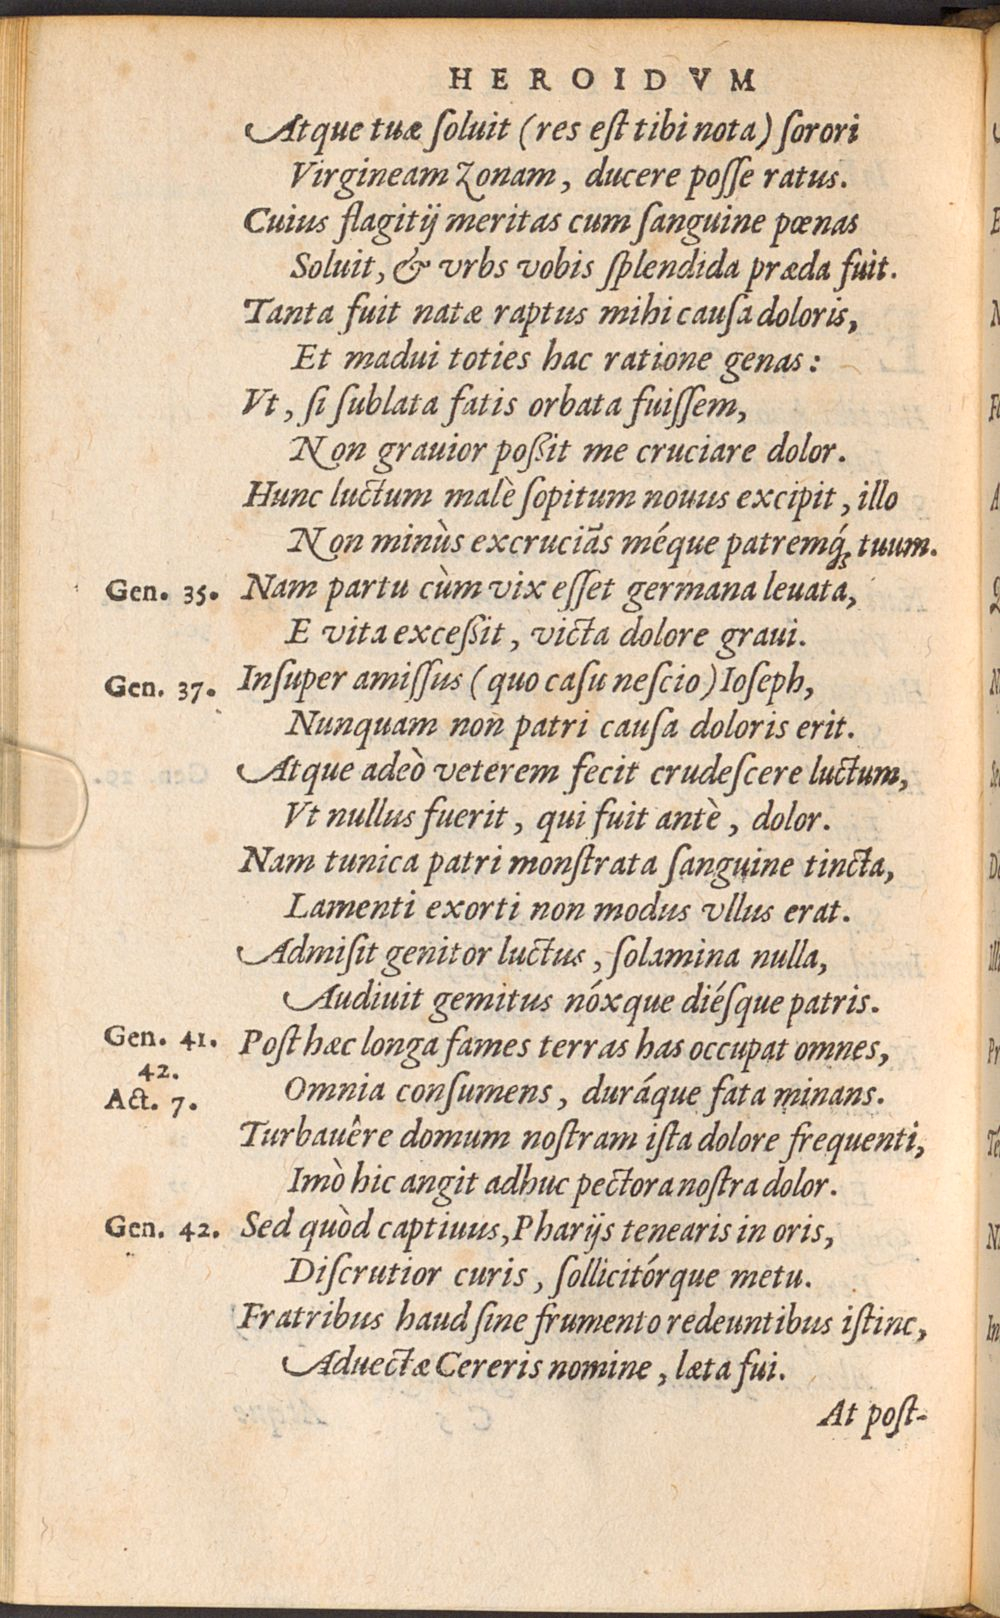 HEROIDVM
Atque tuæ ſoluit (res eſt tibi nota) ſorori
Virgineam Zonam, ducere poſſe ratus.
Cuius flagitij meritas cum ſanguine pœnas
Soluit, & vrbs vobis ſplendida præda fuit.
Tanta fuit natæ raptus mihi cauſa doloris,
Et madui toties hac ratione genas:
Vt, ſi ſublata fatis orbata fuiſſem,
Non grauior poßit me cruciare dolor.
Hunc luctum malè ſopitum nouus excipit, illo
Non minùs excruciãs méque patremq́; tuum.
Gen. 35. Nam partu cùm vix eſſet germana leuata,
E vita exceßit, victa dolore graui.
Gen. 37. Inſuper amiſſus (quo caſu neſcio) Ioſeph,
Nunquam non patri cauſa doloris erit.
Atque adeò veterem fecit crudeſcere luctum,
Vt nullus fuerit, qui fuit antè, dolor.
Nam tunica patri monſtrata ſanguine tincta,
Lamenti exorti non modus vllus erat.
Admiſit genitor luctus, ſolamina nulla,
Audiuit gemitus nóxque diéſque patris.
Gen. 41. Poſt hæc longa fames terras has occupat omnes,
42.
Act. 7. Omnia conſumens, duráque fata minans.
Turbauêre domum noſtram iſta dolore frequenti,
Imò hic angit adhuc pectora noſtra dolor.
Gen. 42. Sed quòd captiuus, Pharijs tenearis in oris,
Diſcrutior curis, ſollicitórque metu.
Fratribus haud ſine frumento redeuntibus iſtinc,
Aduectæ Cereris nomine, læta fui.
At poſt-